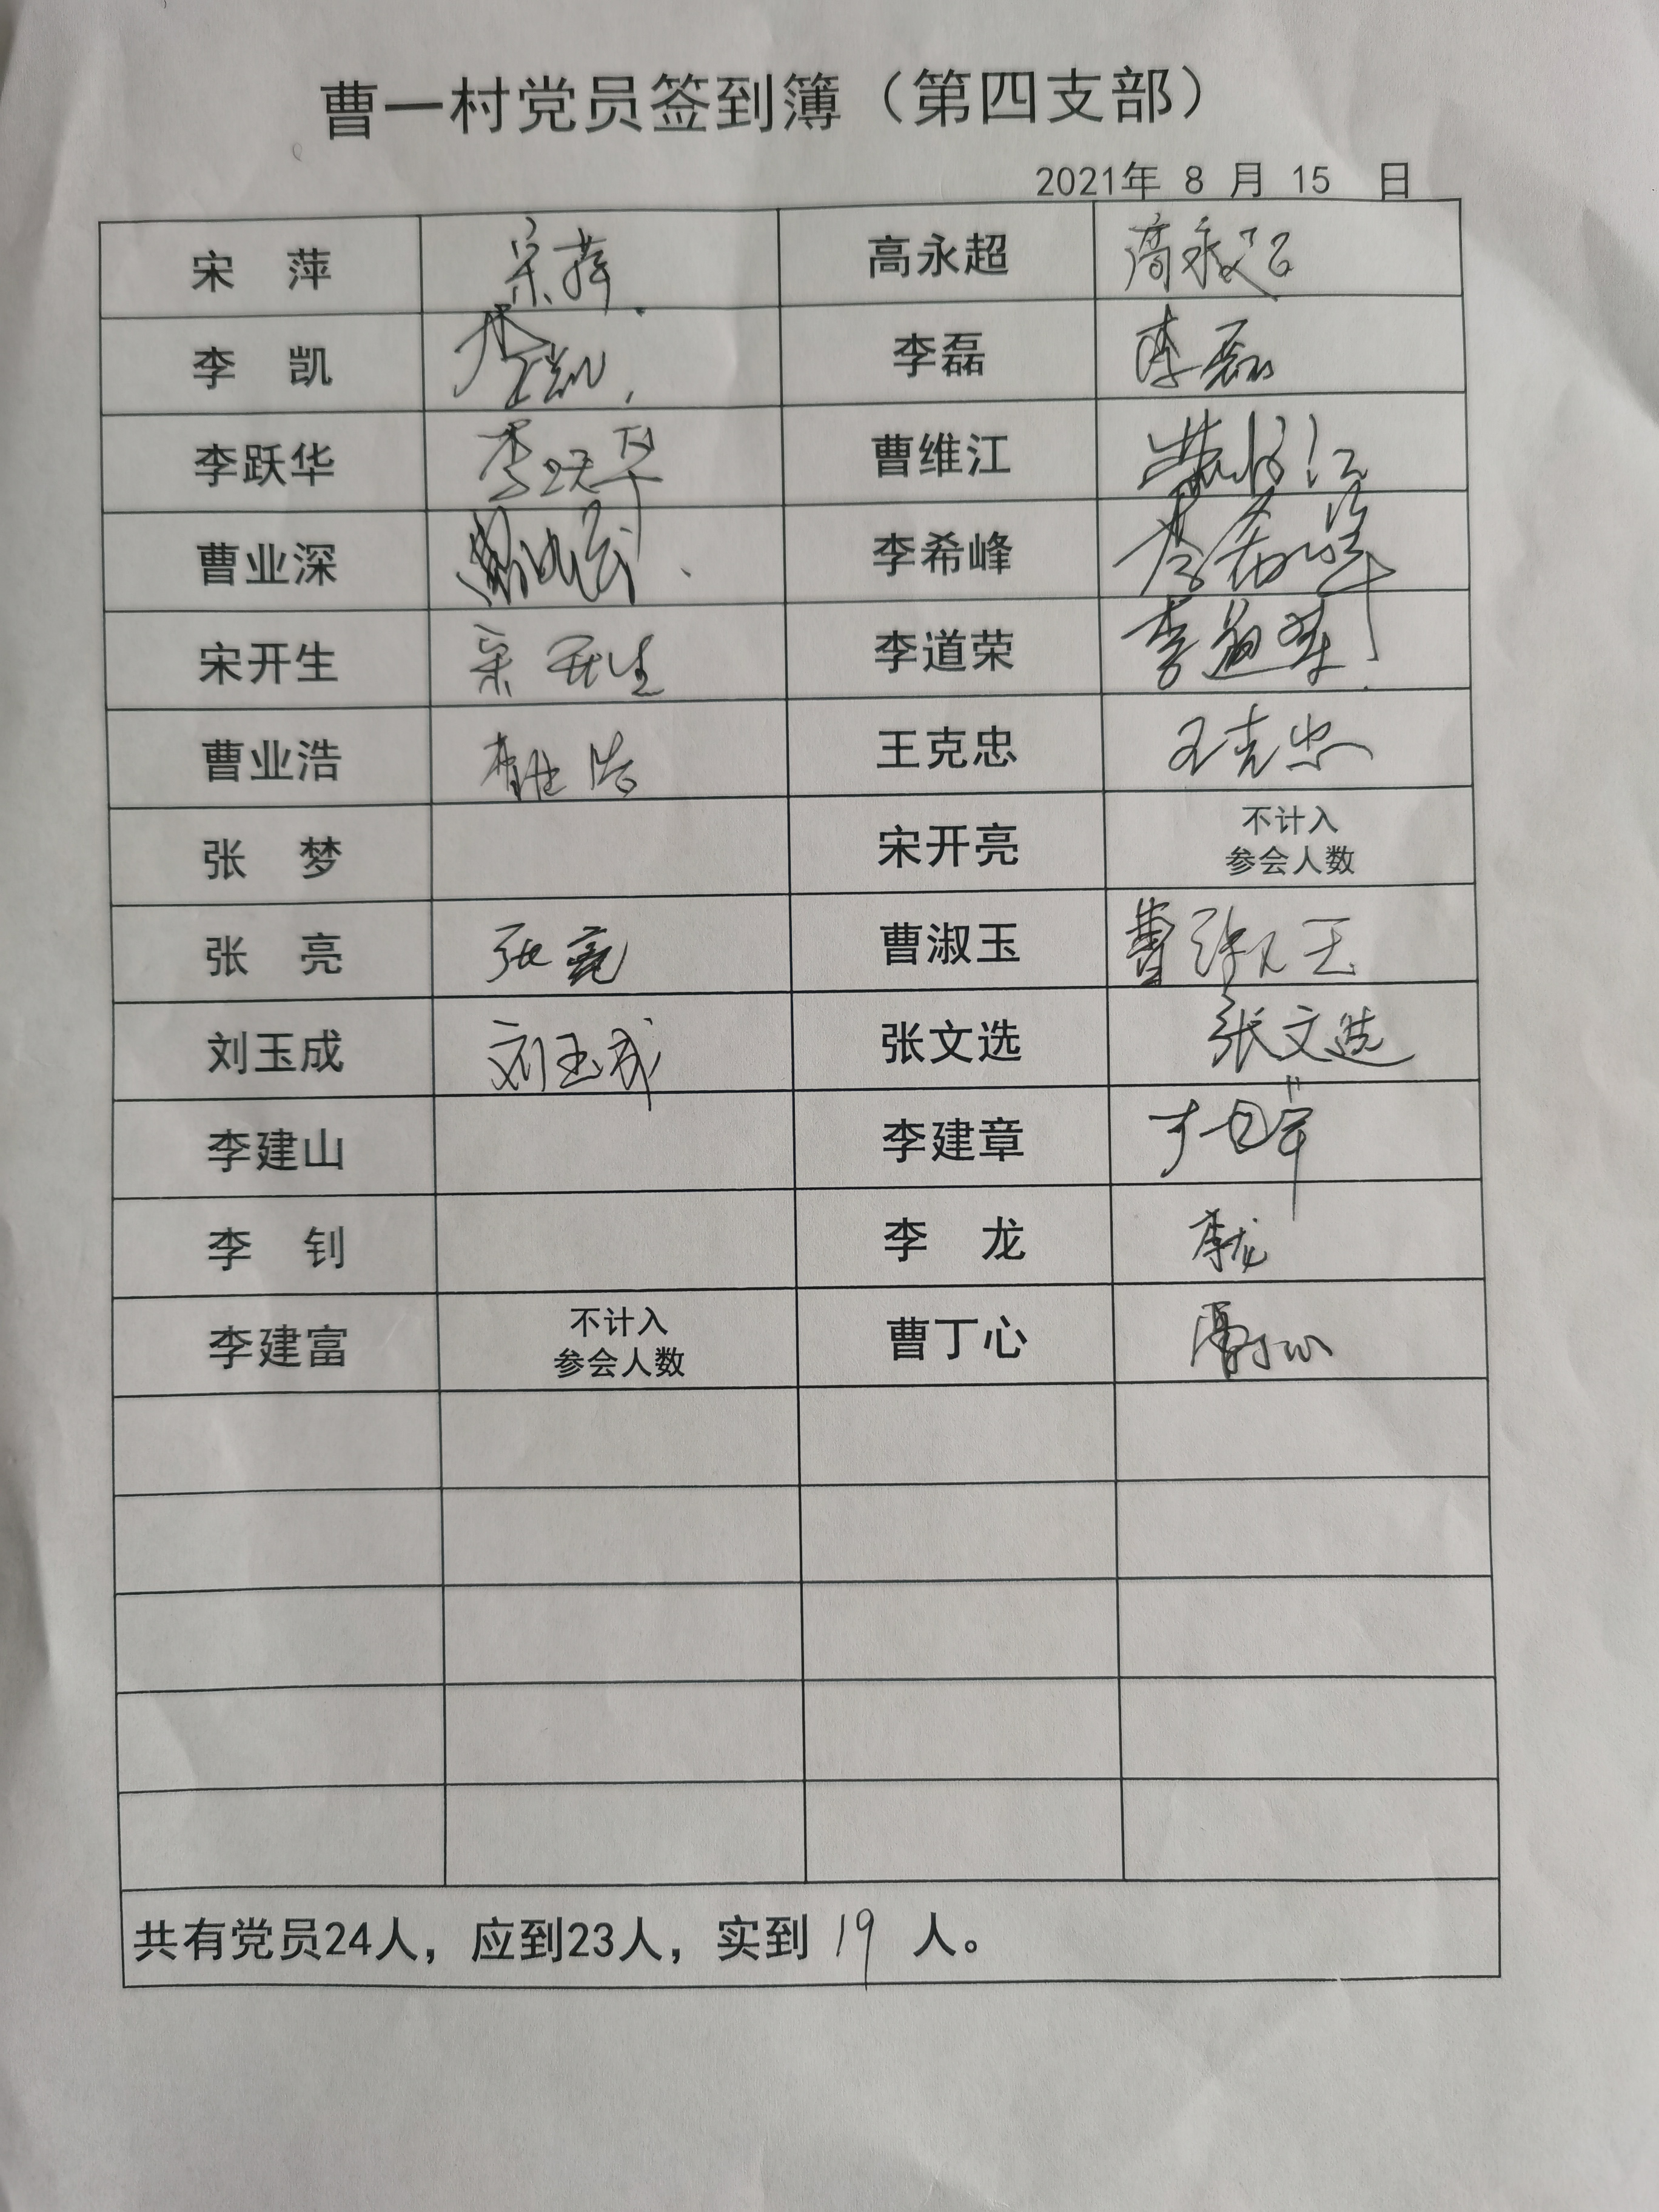 曹一村党员签到簿（第四支部）
2021年 8 月 15 日
宋 萍 宋萍 高永超 高永超
李 凯 李凯 李磊 李磊
李跃华 李跃华 曹维江 曹维江
曹业深 李希峰 李希峰
宋开生 宋开生 李道荣 李道荣
曹业浩 曹业浩 王克忠 王克忠
张 梦 宋开亮 不计入
参会人数
张 亮 张亮 曹淑玉 曹淑玉
刘玉成 刘玉成 张文选 张文选
李建山 李建章
李 钊 李 龙 李龙
李建富 不计入
参会人数
曹丁心 曹丁心
共有党员24人，应到23人，实到 19 人。